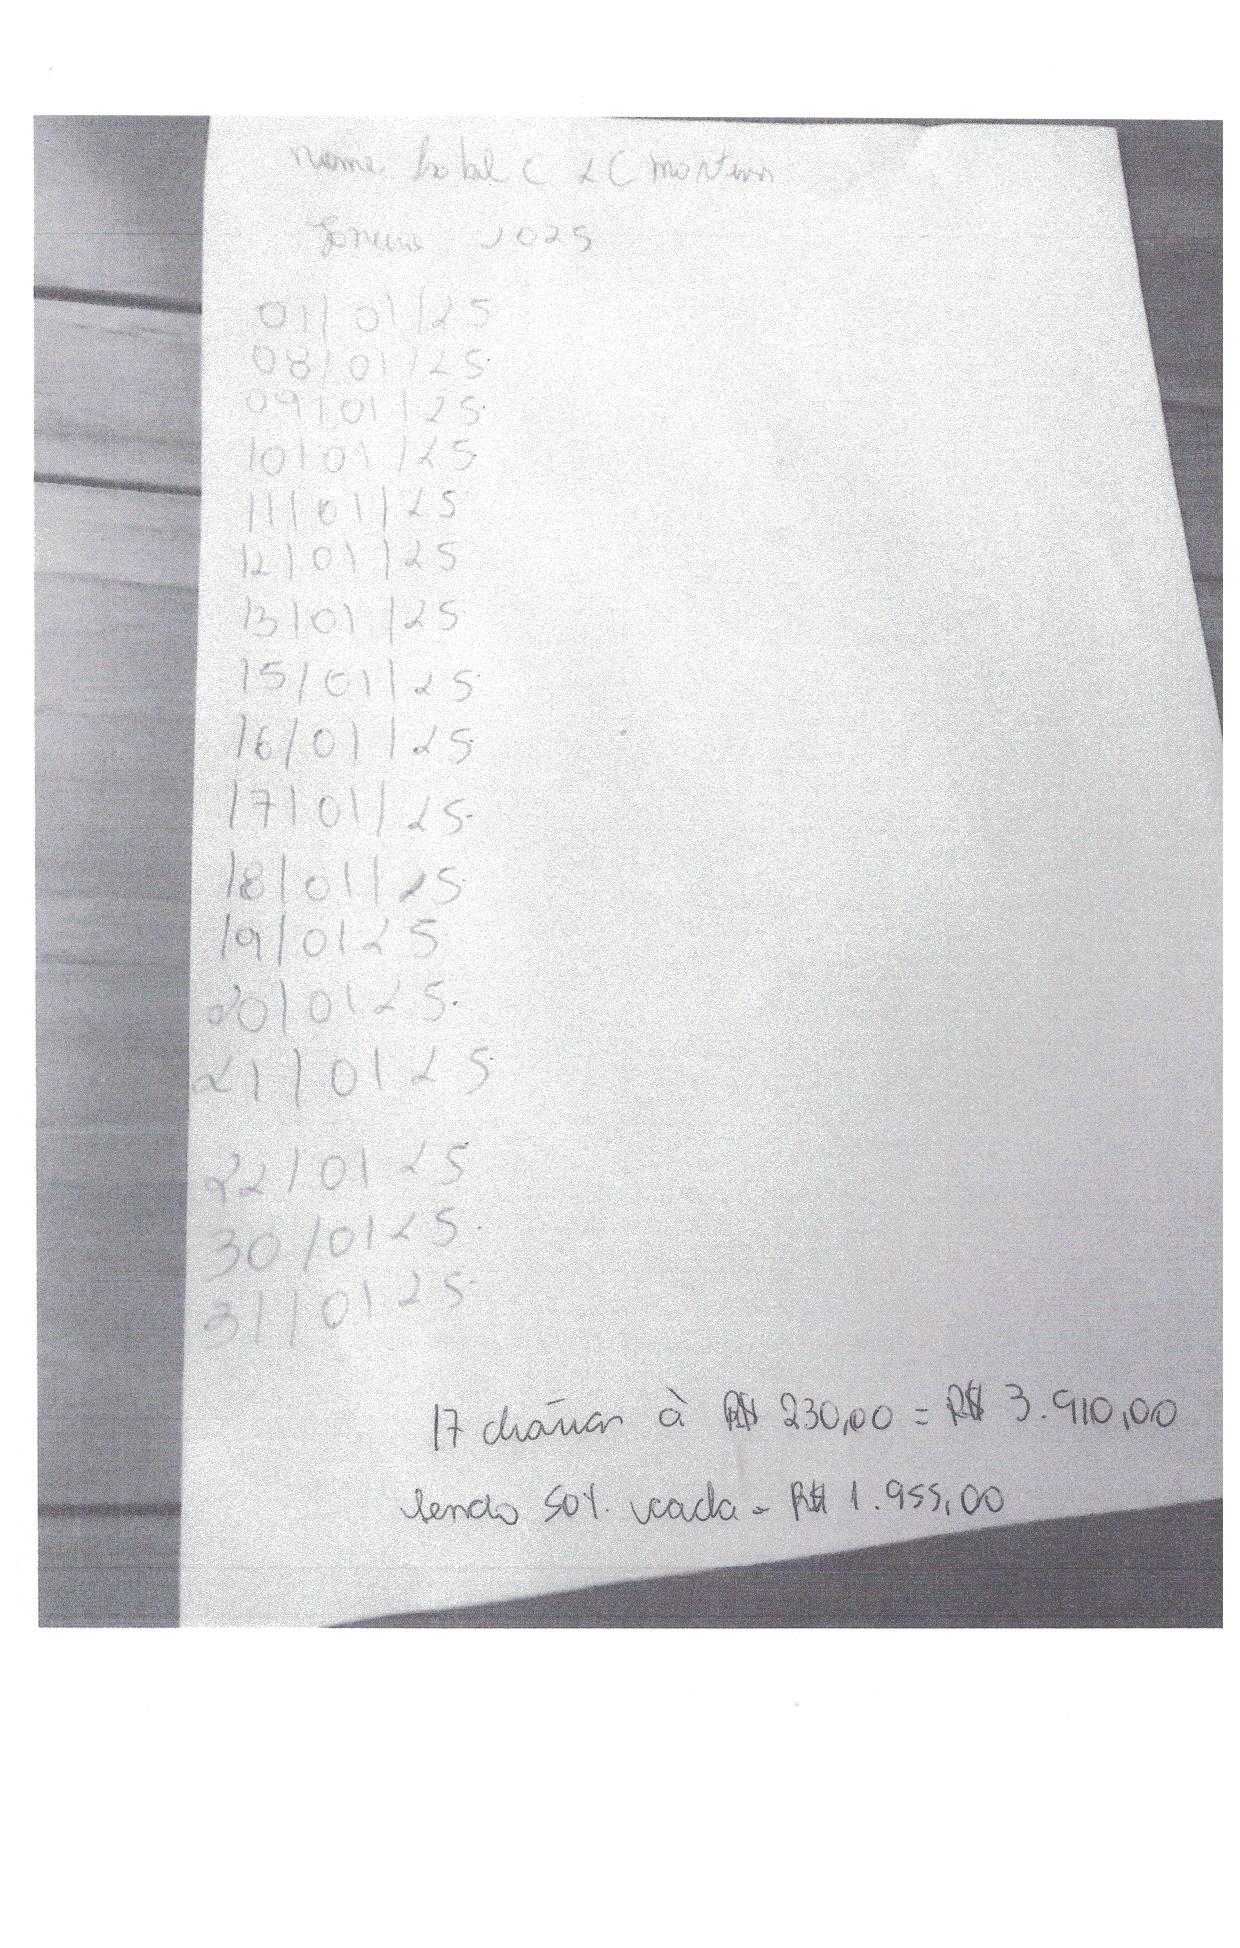 nome
2025
01/01/25
08/01/25
09/01/25
10/01/25
11/01/25
12/01/25
13/01/25
15/01/25
16/01/25
17/01/25
18/01/25
19/0125
20/0125
21/0125
22/0125
30/0125
31/0125
17 diárias à R$ 230,00 = R$ 3.910,00
sendo 50% cada = R$ 1.955,00